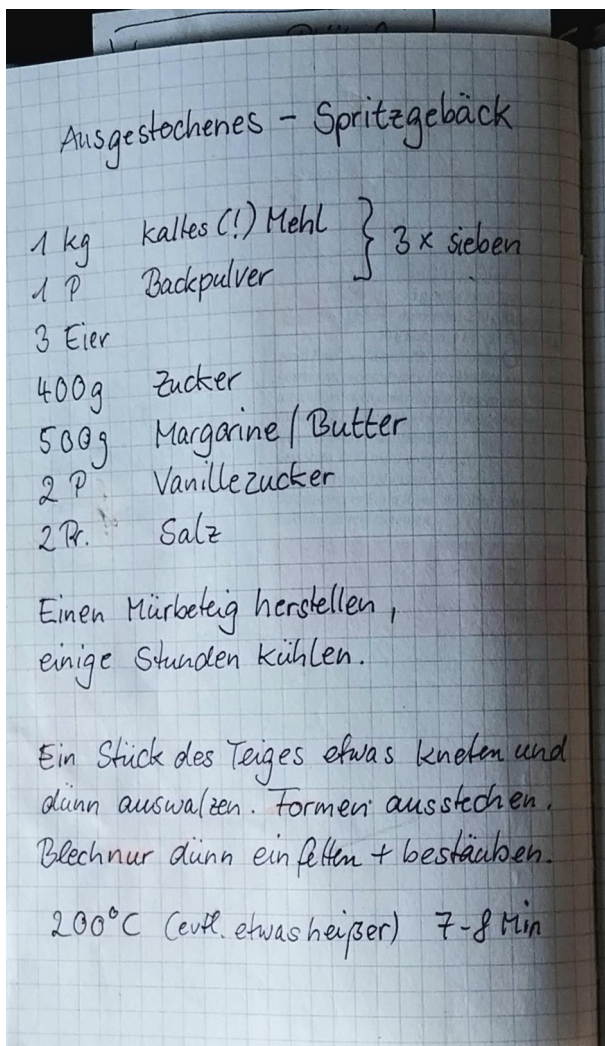 Ausgestochenes - Spritzgebäck
1 kg kaltes (!) Mehl } 3 x sieben
1 P Backpulver
3 Eier
400g Zucker
500g Margarine / Butter
2 P Vanillezucker
2 Pr. Salz
Einen Mürbeteig herstellen,
einige Stunden kühlen.
Ein Stück des Teiges etwas kneten und
dünn auswalzen. Formen ausstechen.
Blech nur dünn einfetten + bestäuben.
200°C (evtl. etwas heißer) 7-8 Min